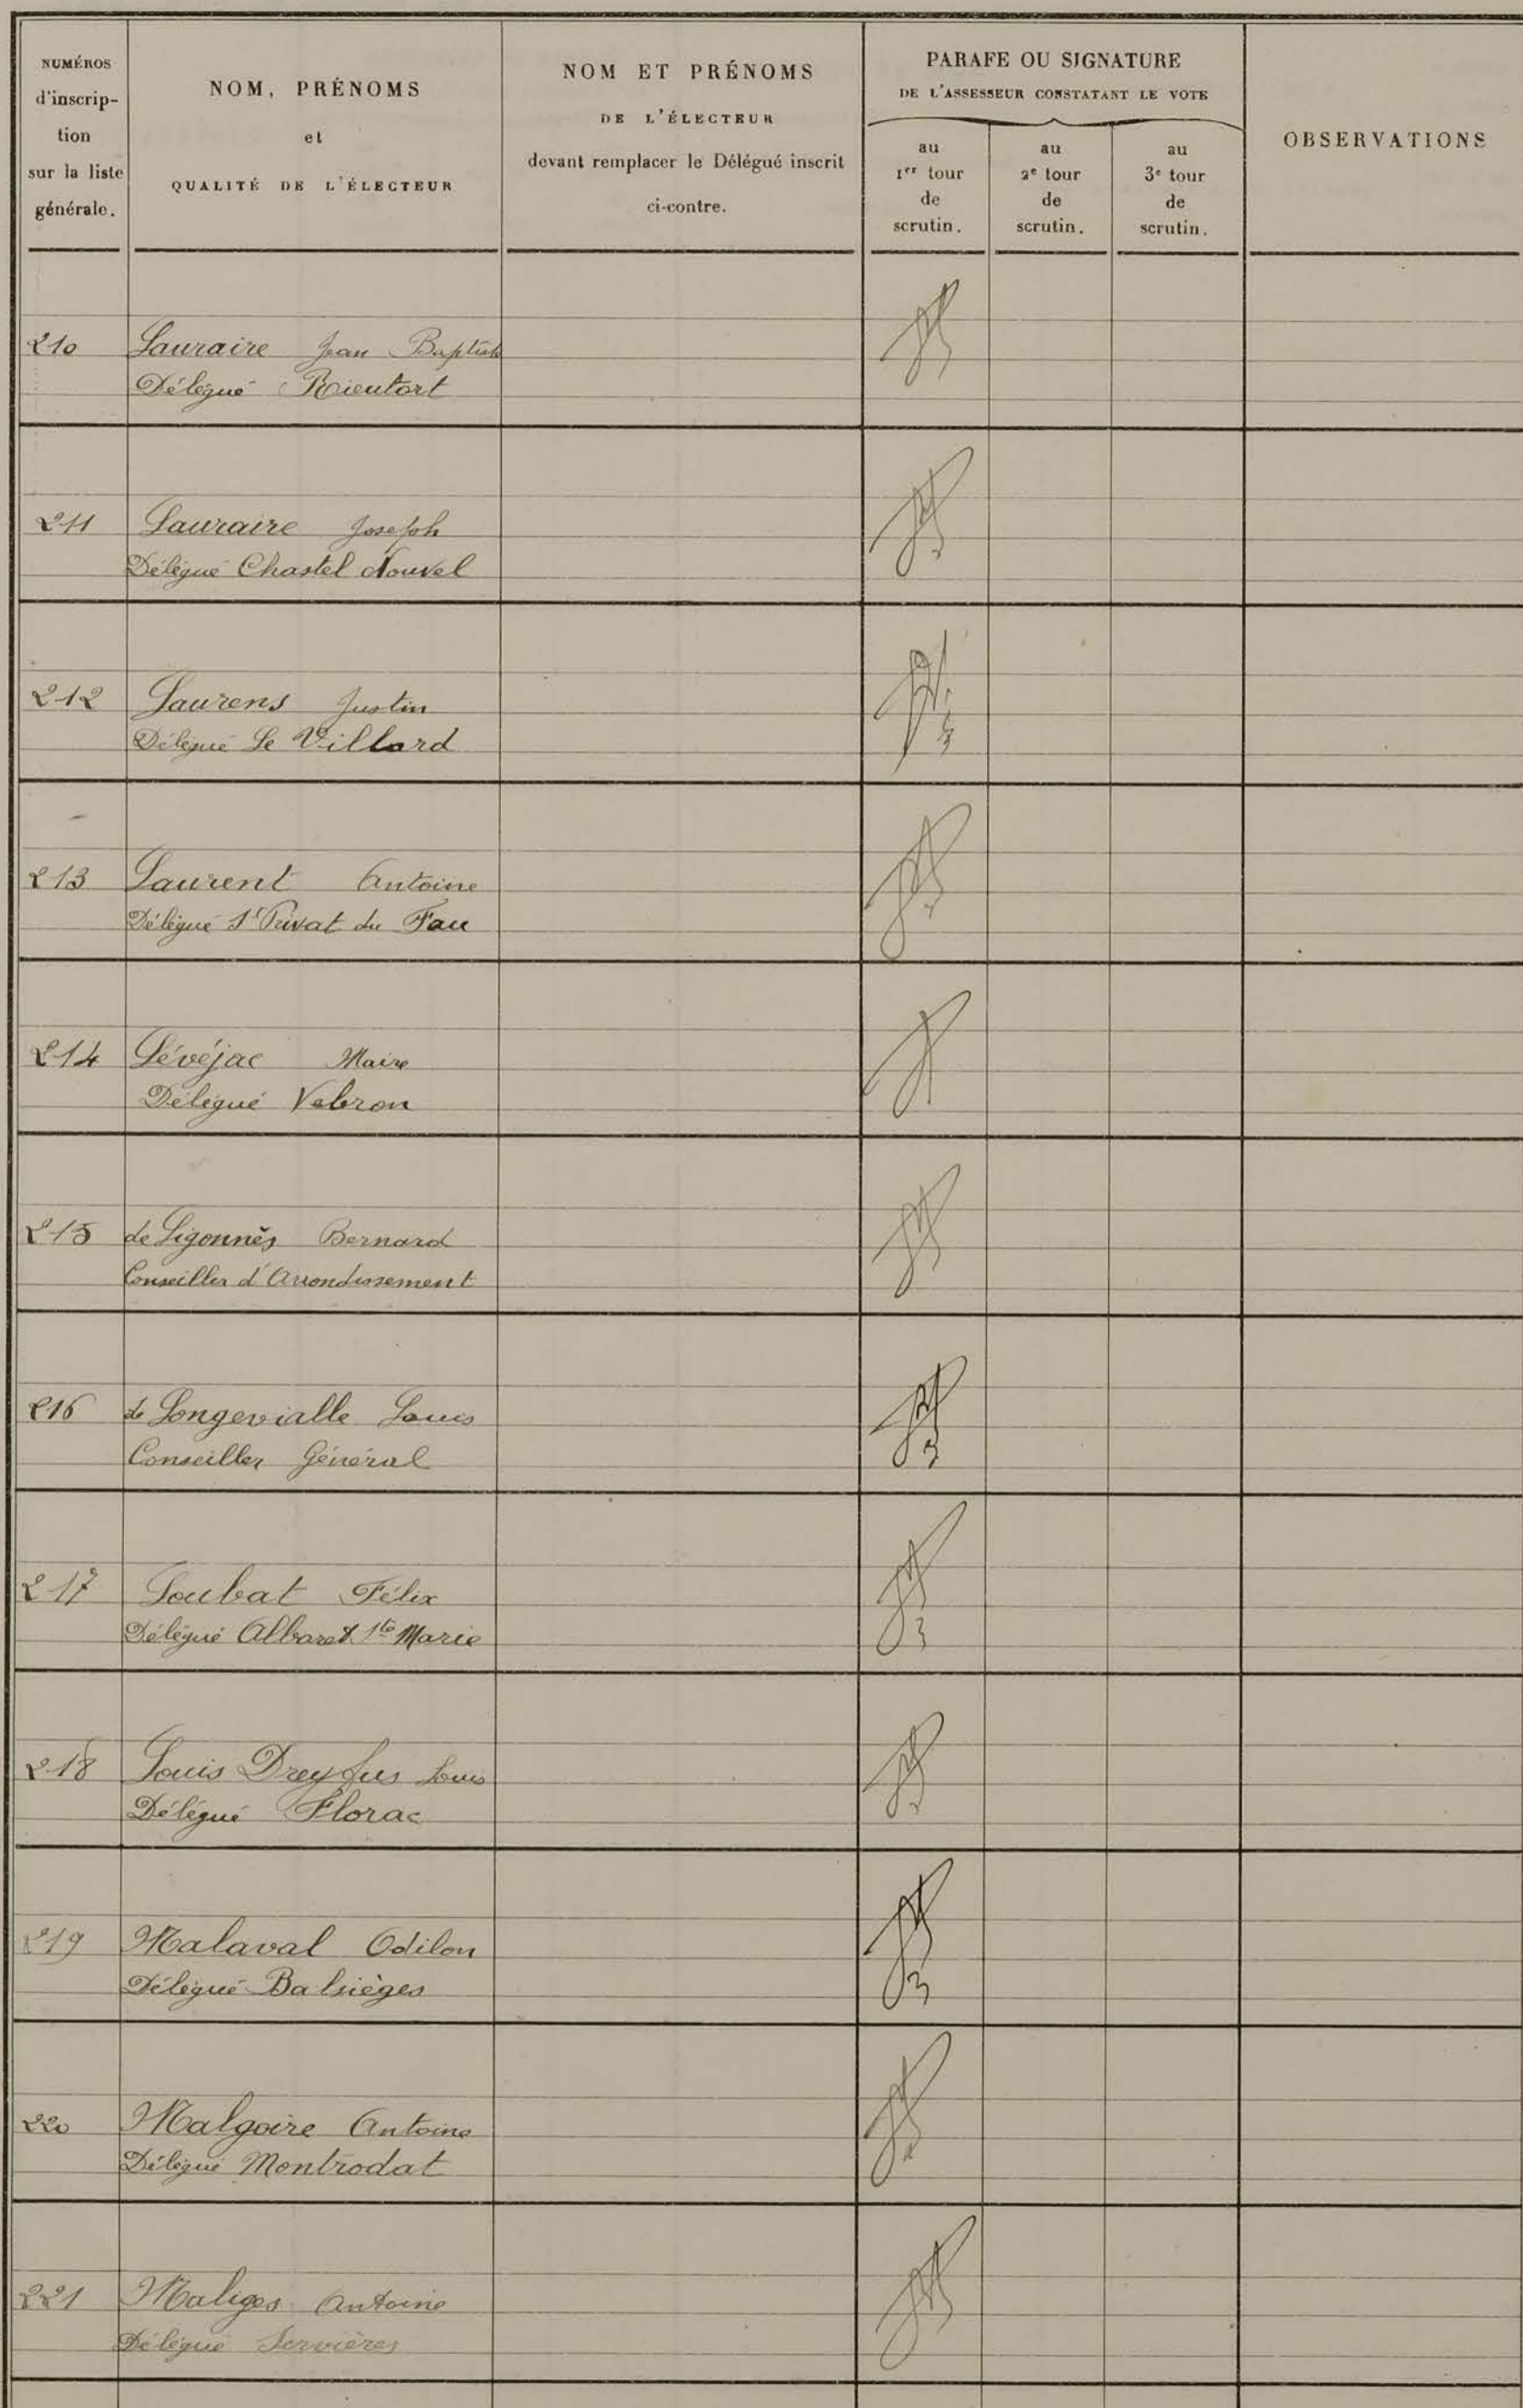 NUMÉROS
d'inscrip-
tion
sur la liste
générale.
NOM, PRÉNOMS
et
QUALITÉ DE L'ÉLECTEUR
NOM ET PRÉNOMS
DE L'ÉLECTEUR
devant remplacer le Délégué inscrit
ci-contre.
PARAFE OU SIGNATURE
DE L'ASSESSEUR CONSTATANT LE VOTE
au
1er tour
de
scrutin.
au
2e tour
de
scrutin.
au
3e tour
de
scrutin.
OBSERVATIONS
210 Lauraire Jean Baptiste
Délégué Rieutort
211 Lauraire Joseph
Délégué Chastel Nouvel
212 Laurens Justin
Délégué Le Villard
213 Laurent Antoine
Délégué St Privat du Fau
214 Lévéjac Maire
Délégué Vebron
215 de Ligonnès Bernard
Conseiller d'Arrondissement
216 de Longevialle Louis
Conseiller Général
217 Loubat Félix
Délégué Albaret Ste Marie
218 Louis Dreyfus Louis
Délégué Florac
219 Malaval Odilon
Délégué Balsièges
220 Malgoire Antoine
Délégué Montrodat
221 Maliges Antoine
Délégué Servières